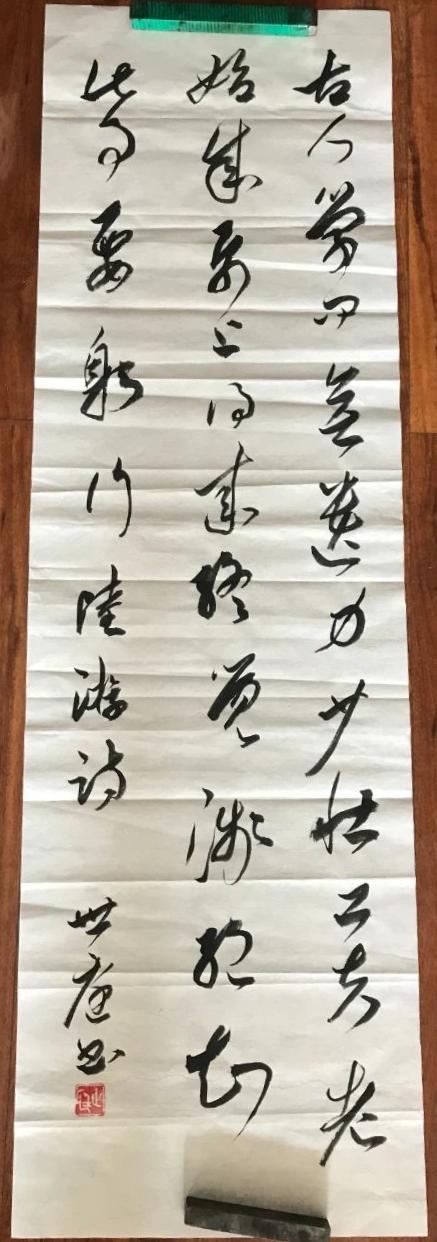 古人學問無遺力少壯工夫老
始成帋上得來終覺淺絕知
此事要躬行陸游詩
世書